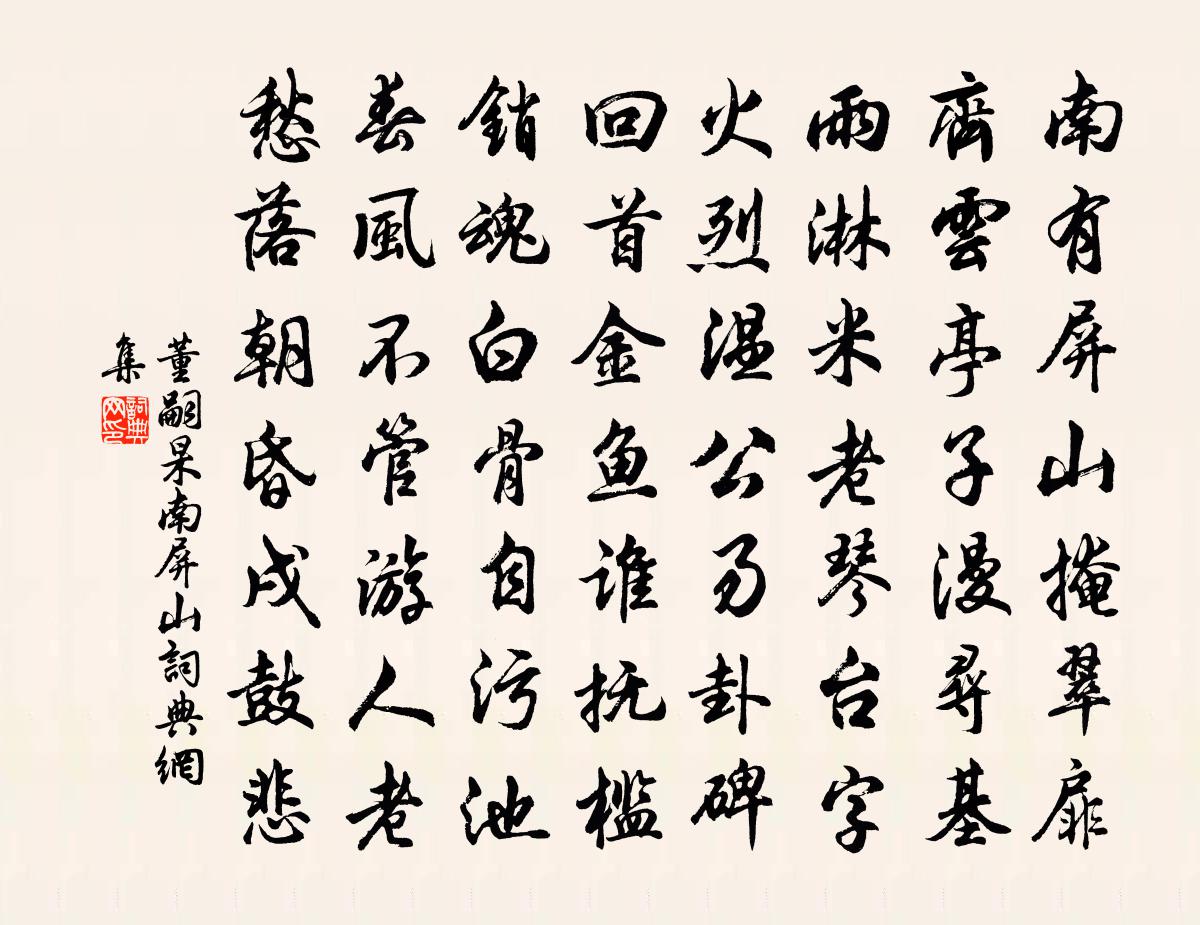 南有屏山掩翠扉
齊雲亭子漫尋基
雨淋米老琴台字
火烈温公易卦碑
回首金鱼誰抚槛
銷魂白骨自污池
春風不管游人老
愁落朝昏戍鼓悲
董嗣杲南屏山詞典網
集
詞典网印